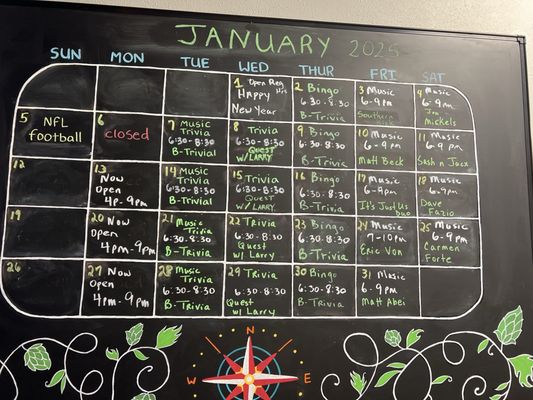 JANUARY 2025
SUN MON TUE WED THUR FRI SAT
1 Open Reg
Happy
New Year
2 Bingo
6:30-8:30
B-Trivia
3 Music
6-9pm
Southern
4 Music
6-9pm
Jim
Mickels
5 NFL
football
6
closed
7 Music
Trivia
6:30-8:30
B-Trivial
8 Trivia
6:30-8:30
Quest
w/ Larry
9 Bingo
6:30-8:30
B-Trivia
10 Music
6-9pm
Matt Beck
11 Music
6-9pm
Sash n Jocx
12
13
Now
Open
4p-9pm
14 Music
Trivia
6:30-8:30
B-Trivial
15 Trivia
6:30-8:30
Quest
w/ Larry
16 Bingo
6:30-8:30
B-Trivia
17 Music
6-9pm
It's Just Us
Duo
18 Music
6-9pm
Dave
Fazio
19
20 Now
Open
4pm-9pm
21 Music
Trivia
6:30-8:30
B-Trivia
22 Trivia
6:30-8:30
Quest
w/ Larry
23 Bingo
6:30-8:30
B-Trivia
24 Music
7-10pm
Eric Von
25 Music
6-9pm
Carmen
Forte
26
27 Now
Open
4pm-9pm
28 Music
Trivia
6:30-8:30
B-Trivia
29 Trivia
6:30-8:30
Quest
w/ Larry
30 Bingo
6:30-8:30
B-Trivia
31 Music
6-9pm
Matt Abei
N
W E